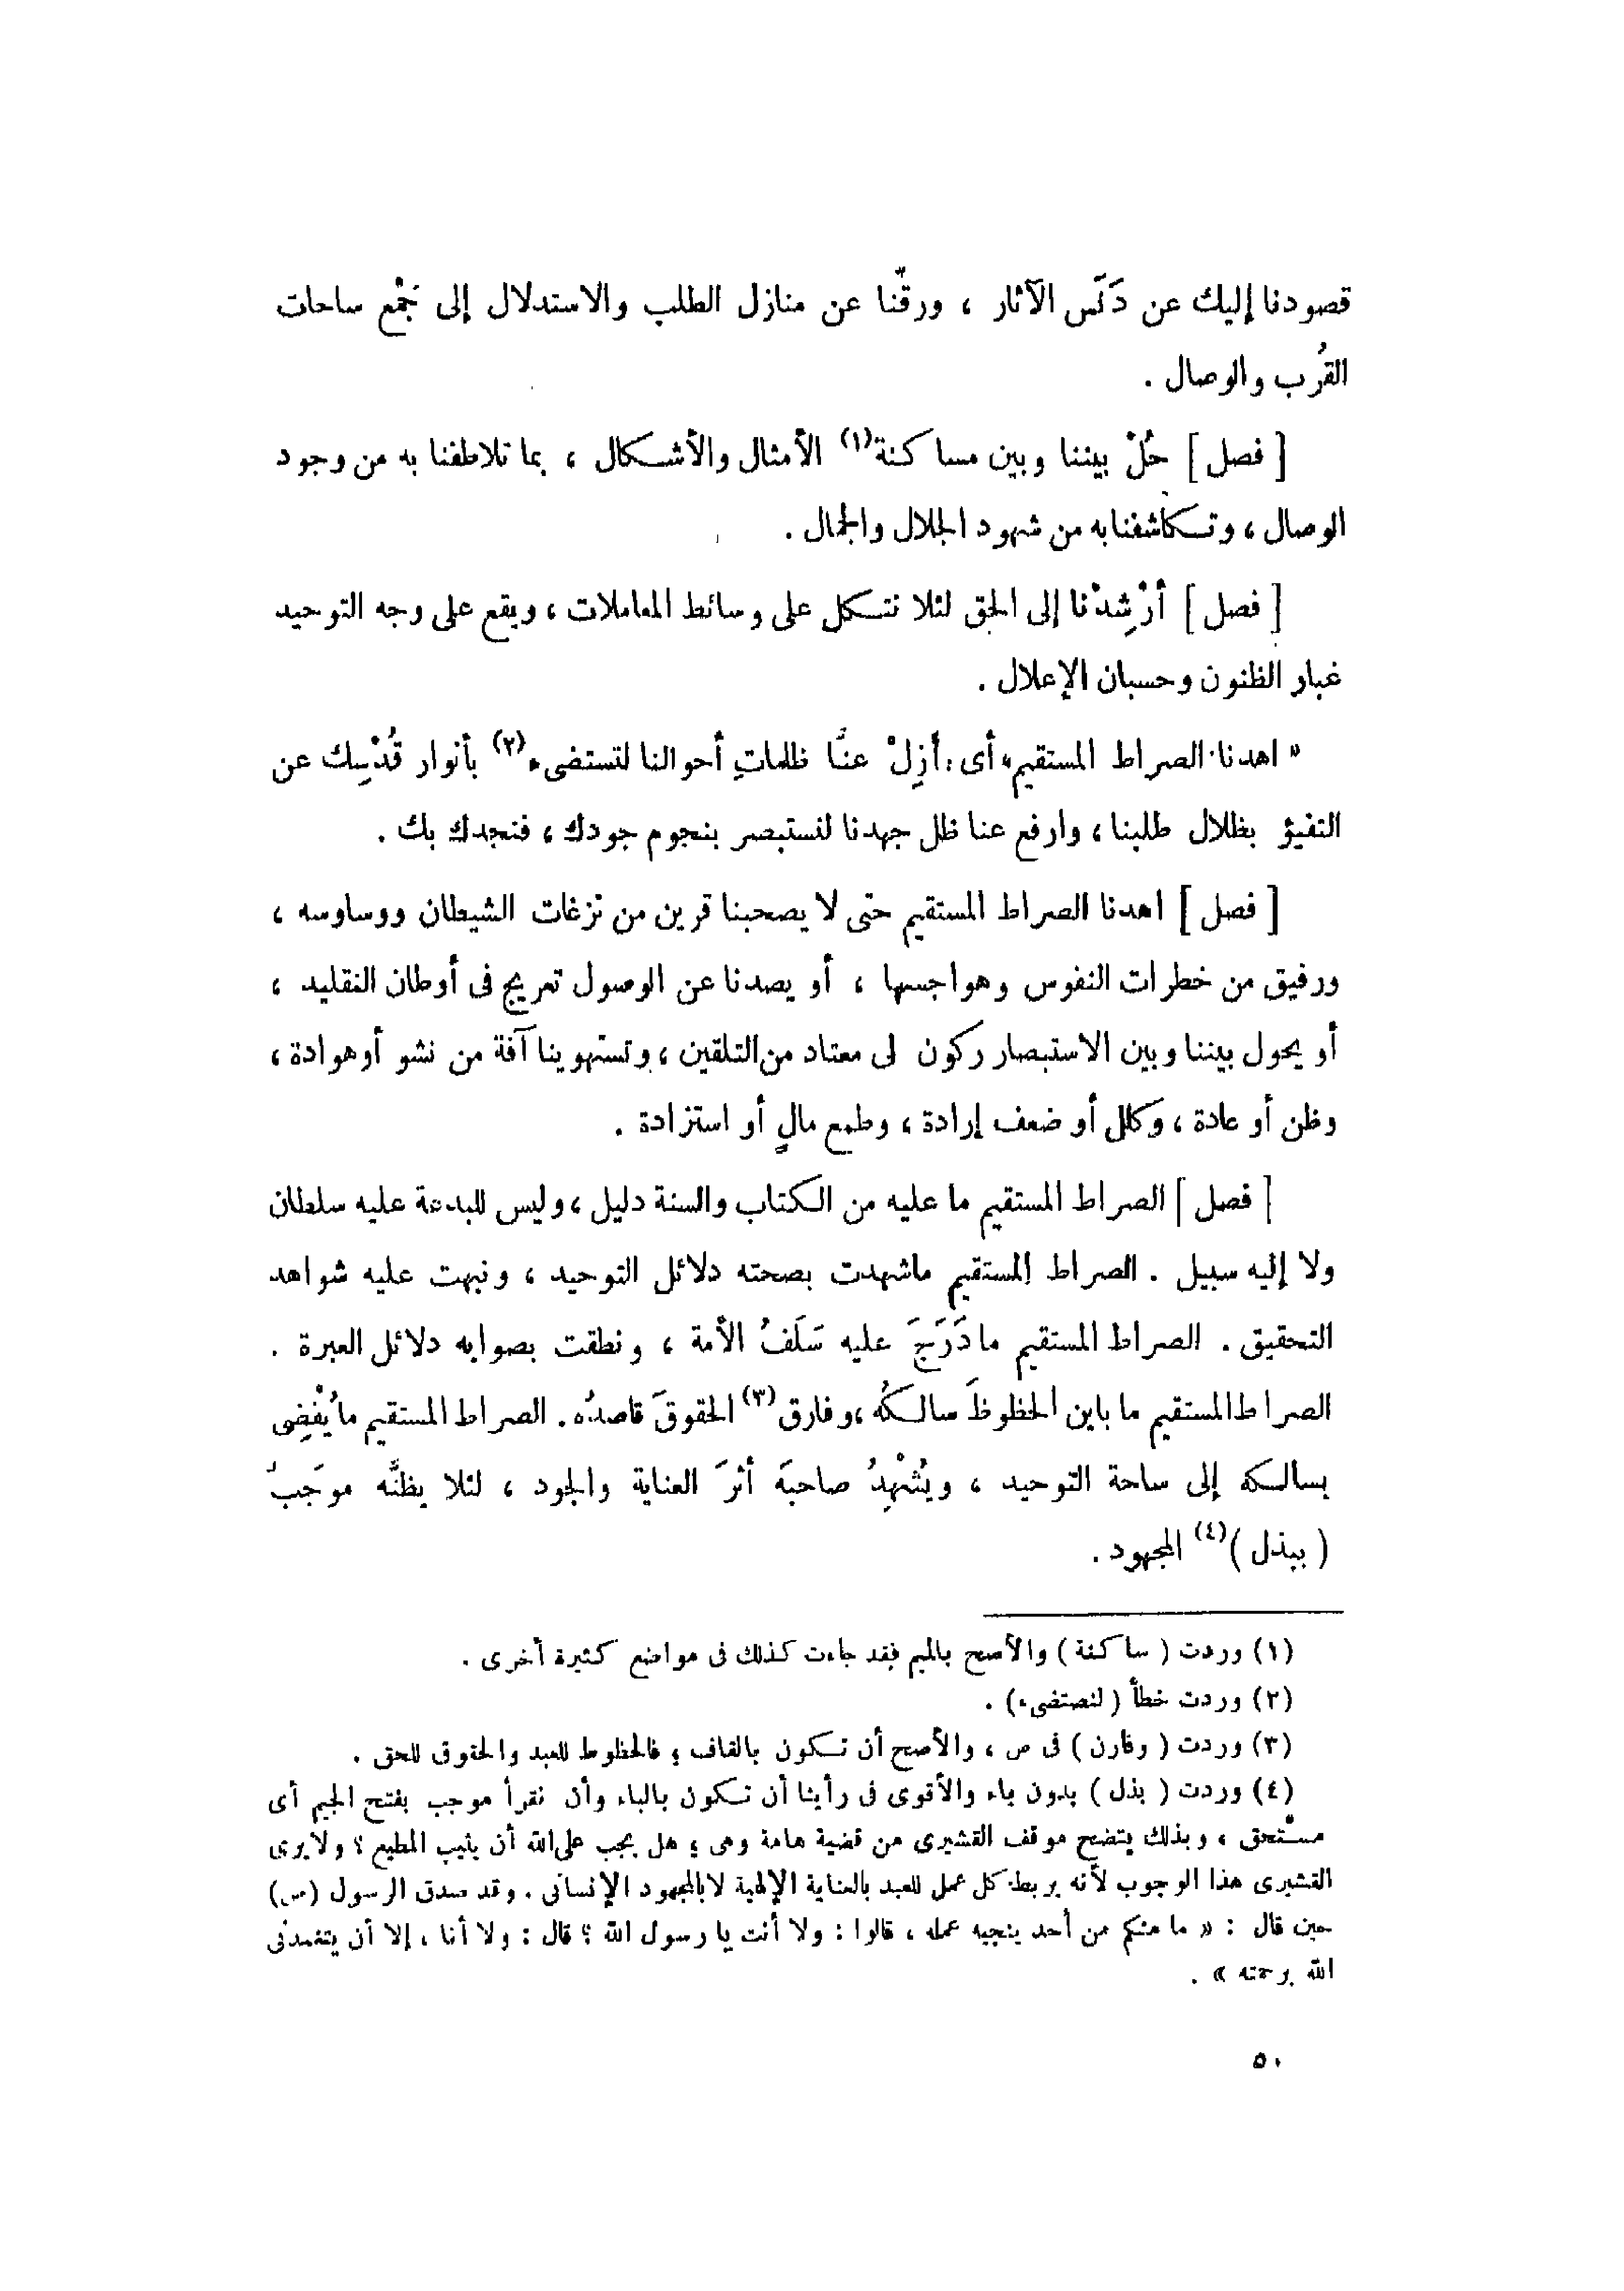 قصودنا إليك عن دَنَس الآثار ، ورقّنا عن منازل الطلب والاستدلال إلى جَمْع ساحات
القُرب والوصال .
[ فصل ] حُلْ بيننا وبين مساكنة(١) الأمثال والأشكال ، بما تلاطفنا به من وجود
الوصال ، وتكاشفنا به من شهود الجلال والجمال .
[ فصل ] أرْشِدْنا إلى الحق لئلا نتكل على وسائط المعاملات ، ويقع على وجه التوحيد
غبار الظنون وحسبان الإعلال .
« اهدنا الصراط المستقيم » أى : أزِلْ عنَّا ظلماتِ أحوالنا لنستضىء(٢) بأنوار قُدْسِك عن
التفيؤ بظلال طلبنا ، وارفع عنا ظل جهدنا لنستبصر بنجوم جودك ، فنجدك بك .
[ فصل ] اهدنا الصراط المستقيم حتى لا يصحبنا قرين من نزغات الشيطان ووساوسه ،
ورفيق من خطرات النفوس وهواجسها ، أو يصدنا عن الوصول تعريج فى أوطان التقليد ،
أو يحول بيننا وبين الاستبصار ركون لى معتاد من التلقين ، وتستهوينا آفة من نشو أو هوادة ،
وظن أو عادة ، وكلل أو ضعف إرادة ، وطمع مالٍ أو استزادة .
[ فصل ] الصراط المستقيم ما عليه من الكتاب والسنة دليل ، وليس للبدعة عليه سلطان
ولا إليه سبيل . الصراط المستقيم ما شهدت بصحته دلائل التوحيد ، ونبهت عليه شواهد
التحقيق . الصراط المستقيم ما دَرَجَ عليه سَلَفُ الأمة ، ونطقت بصوابه دلائل العبرة .
الصراط المستقيم ما باين الحظوظَ سالكُه ، وفارق(٣) الحقوقَ قاصدُه . الصراط المستقيم ما يُفْضِى
بسالكه إلى ساحة التوحيد ، ويُشْهِدُ صاحبَه أثرَ العناية والجود ، لئلا يظنَّه موجَبٌ
( ببذل )(٤) المجهود .
(١) وردت ( ساكنة ) والأصح بالميم فقد جاءت كذلك فى مواضع كثيرة أخرى .
(٢) وردت خطأ ( لنصتضىء ) .
(٣) وردت ( وفارن ) فى ص ، والأصح أن تكون بالقاف ؛ فالحظوظ للعبد والحقوق للحق .
(٤) وردت ( بذل ) بدون باء والأقوى فى رأينا أن تكون بالباء وأن نقرأ موجب بفتح الجيم أى
مستحق ، وبذلك يتضح موقف القشيرى من قضية هامة وهى ؛ هل يجب على الله أن يثيب المطيع ؟ ولا يرى
القشيرى هذا الوجوب لأنه يربط كل عمل للعبد بالعناية الإلهية لا بالمجهود الإنسانى . وقد صدق الرسول (ص)
حين قال : « ما منكم من أحد ينجيه عمله ، قالوا : ولا أنت يا رسول الله ؟ قال : ولا أنا ، إلا أن يتغمدنى
الله برحمته » .
٥٠